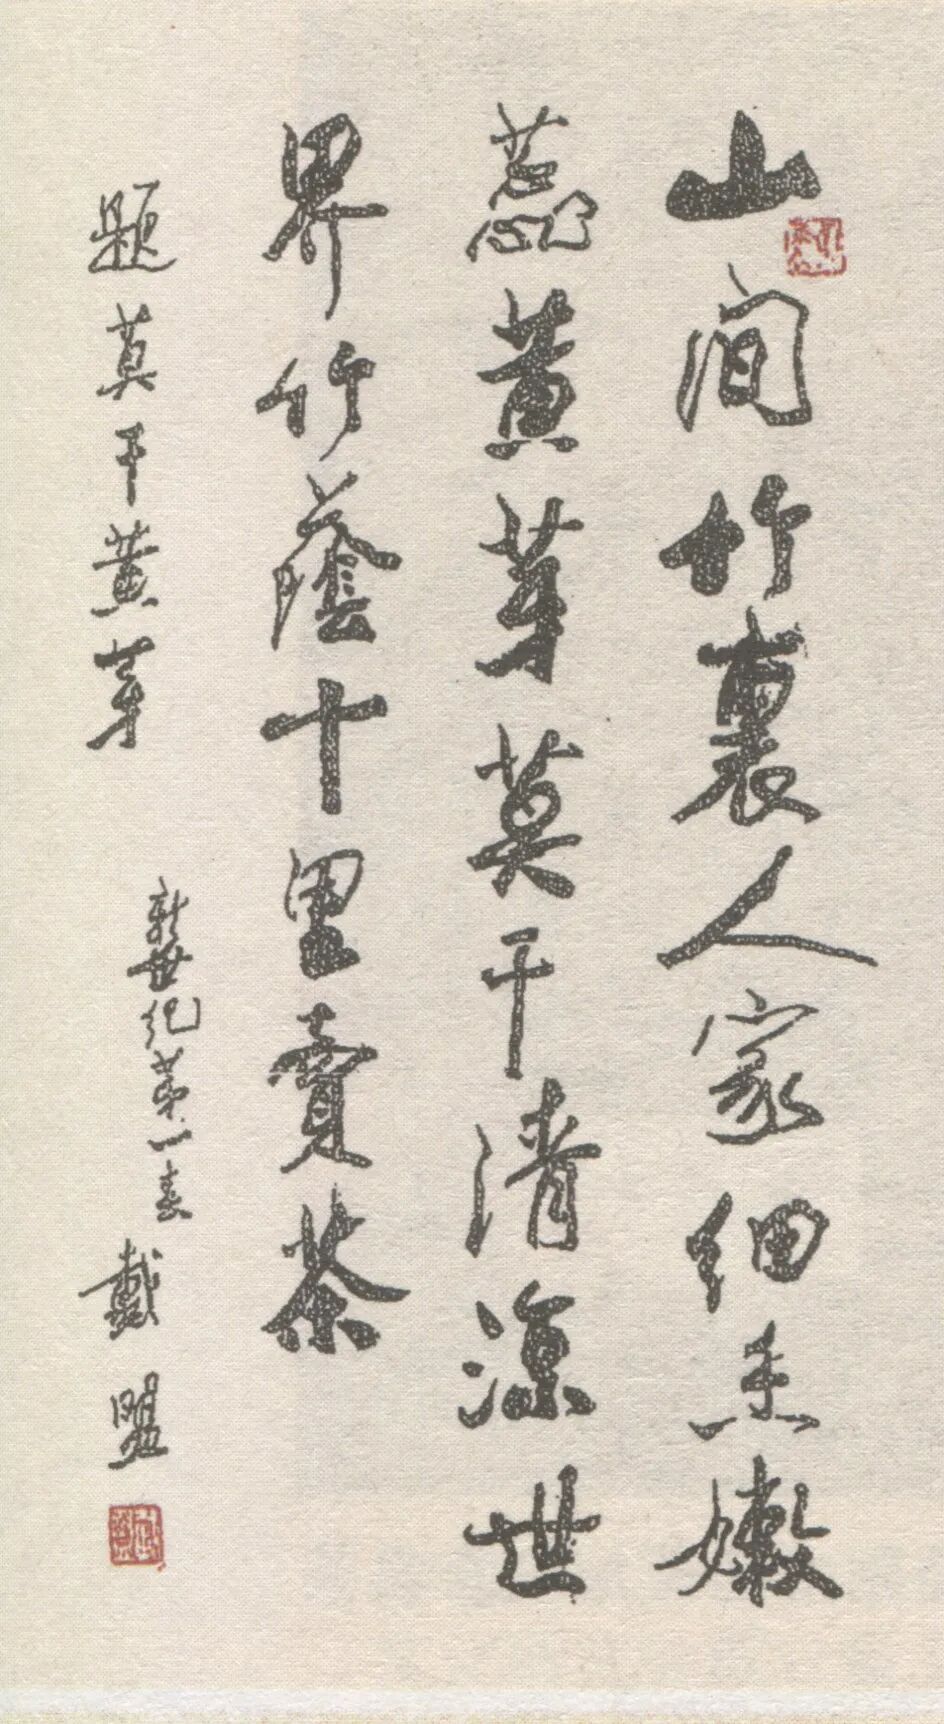 山间竹裏人家细香嫩
蕊黄芽莫干清涼世
界竹蔭十里賣茶
题莫干黄芽
新世纪第一春
戴盟